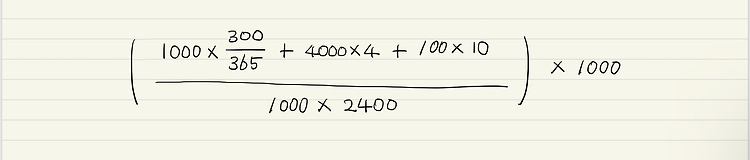 ( (1000 × 300/365 + 4000×4 + 100×10) / (1000 × 2400) ) × 1000